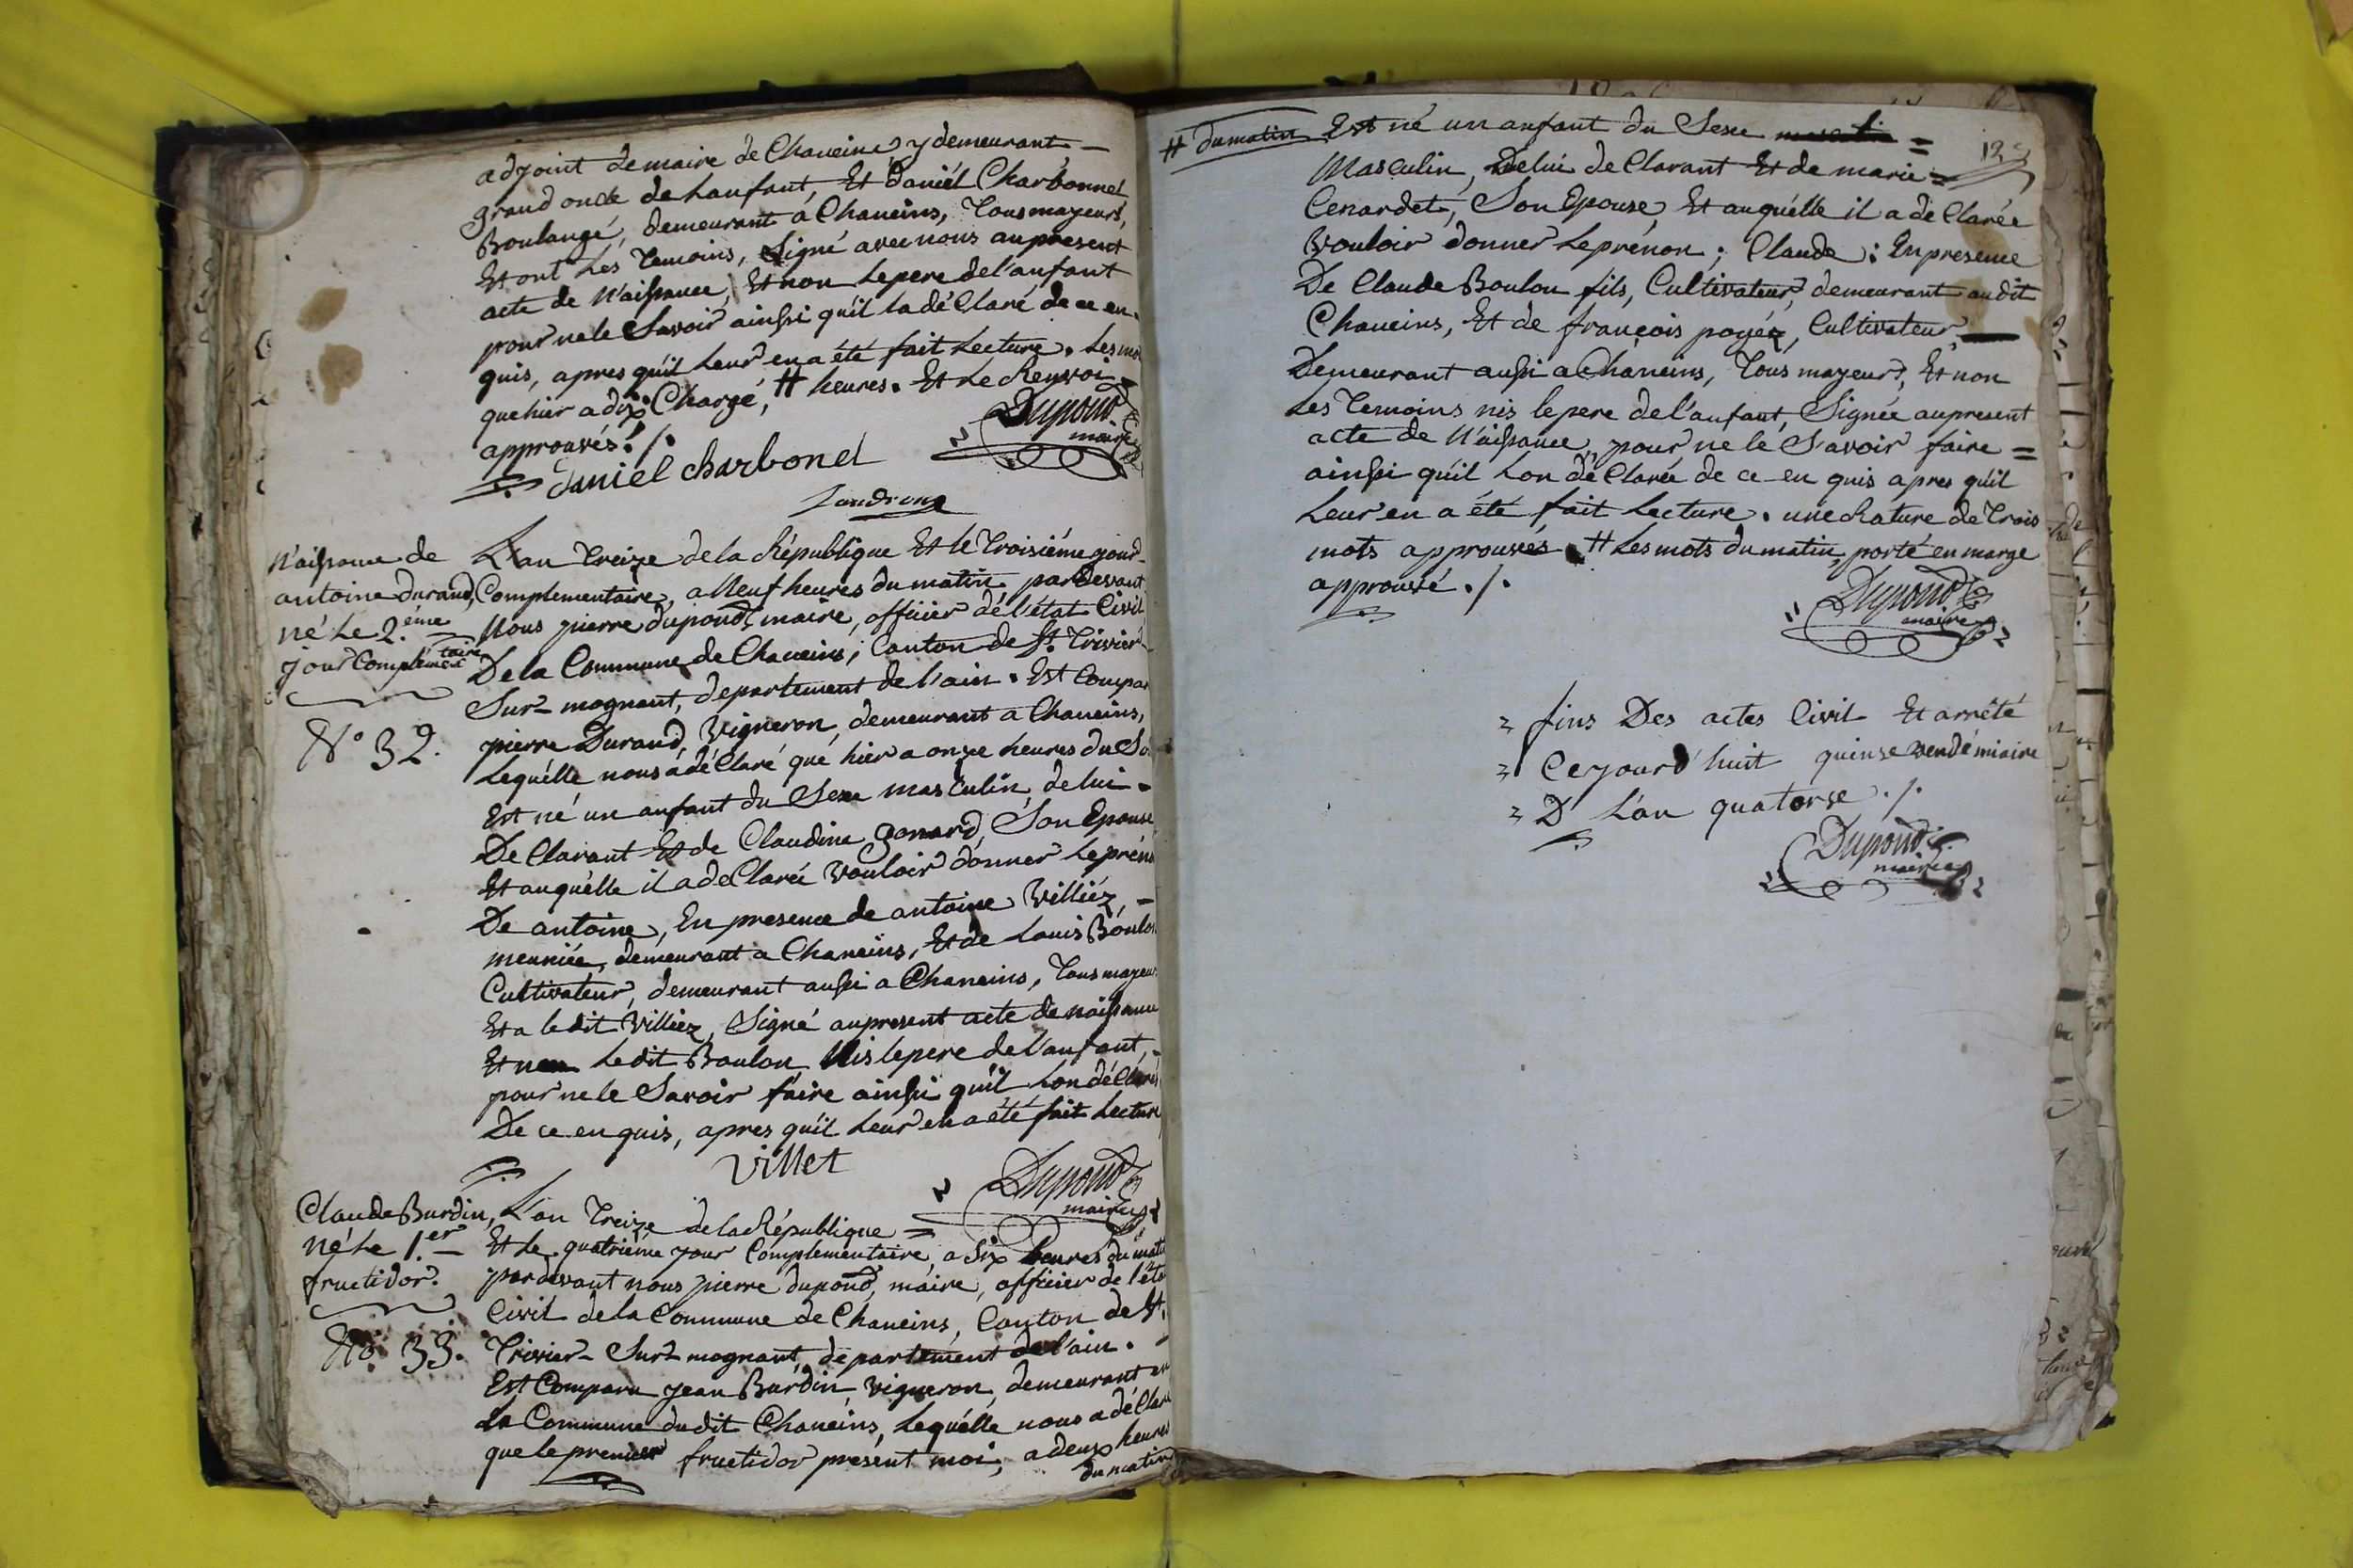 adjoint de maire de Chaneins y demeurant —
grand oncle de Lanfant, Et Daniél Charbonnel
Boulangé, demeurant a Chaneins, Tous mayeurs,
Et ont Les Temoins, Signé avec nous au present
acte de N'aissance, Et non Le pere de l'anfant
pour ne le Savoir ainssi qu'il La dé Claré de ce en
quis, apres qu'il Leur en a été fait Lecture. Les mo
que hier a dix Chargé, # heures. Et Le Renvoi
approuvés ./.
Dupond
maire
daniel charbonel
Landron
N'aissance de
antoine durand,
né Le 2.éme
jour Complémentaire
N.o 32.
L'an Treize de la République Et le Troisiéme jour
Complementaire, a Neuf heures du matin. par devant
Nous pierre dupond, maire, officier dé l'état Civil
De la Commune de Chaneins, Canton de St. Trivier
Sur-mognant, departement de l'ain. Est Compar
pierre Durand, Vigneron, demeurant a Chaneins,
Lequélle nous a dé Claré que hier a onze heures du So
Est né un anfant du Sexe masculin, de lui =
De Clarant Et de Claudine Genard, Son Epouse
Et auquélle il a de Clarée Vouloir donner Le préno
De antoine, En presence de antoine Villiéz, —
meuniée, demeurant a Chaneins, Et de Louis Boulon
Cultivateur, demeurant aussi a Chaneins, Tous mayeur
Et a le dit Villiez, Signé au present acte de naissance
Et non Le dit Boulon, Nis le pere de l'anfant,
pour ne le Savoir faire ainssi qu'il Lon dé Claré
De ce en quis, apres qu'il Leur en a été fait Lecture
Villet
Dupond
maire
Claude Burdin,
né Le 1.er
fructidor.
No. 33.
L'an Treize de la République =
Et Le quatriéme jour Complementaire, a Six heures du mati
par devant nous pierre dupond, maire, officier de l'éta
Civil de la Commune de Chaneins, Canton de St.
Trivier-Sur-mognant, departement de l'ain.
Est Comparu jean Burdin, Vigneron, demeurant en
La Commune du dit Chaneins, Lequélle nous a dé Claré
que le premier fructidor présent moi, a deux heures
du matin
# du matin
Est né un anfant du Sexe =
12
Masculin, De lui de Clarant Et de marie =
Cenardet, Son Epouse, Et auquélle il a de Clarée
Vouloir donner Le prénon ; Claude : En presence
De Claude Boulon fils, Cultivateur, demeurant au dit
Chaneins, Et de françois poyéz, Cultivateur, —
Demeurant aussi a Chaneins, Tous mayeurs, Et non
Les Temoins nis le pere de l'anfant, Signée au present
acte de N'aissance, pour ne le Savoir faire =
ainssi qu'il Lon dé Clarée de ce en quis apres qu'il
Leur en a été fait Lecture. une Rature de Trois
mots approuvés # Les mots du matin, porté en marge
approuvé ./.
Dupond
maire
fins Des actes Civil Et arrêté
Ce jourd'huit quinse vendémiaire
D L'an quatorse ./.
Dupond
maire